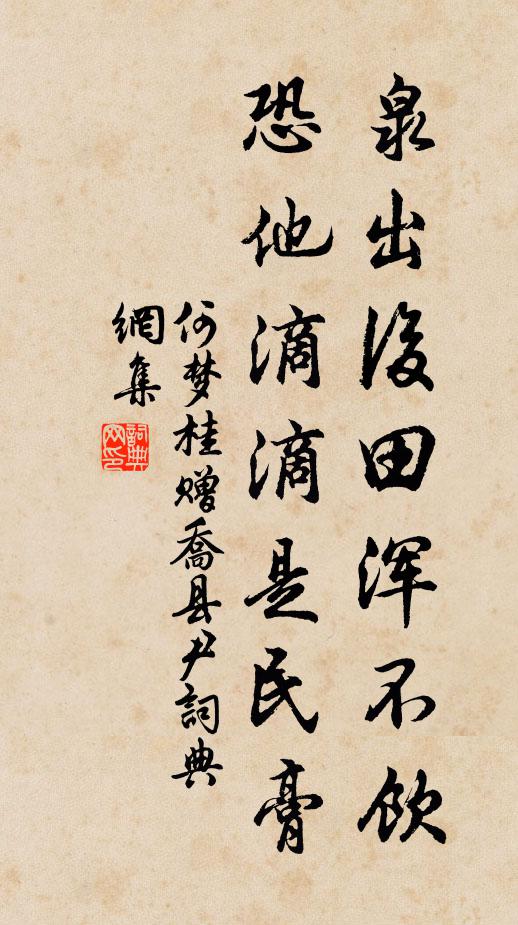 泉出後田浑不饮
恐他滴滴是民膏
何梦桂赠喬县尹詞典
網集
詞典
网印